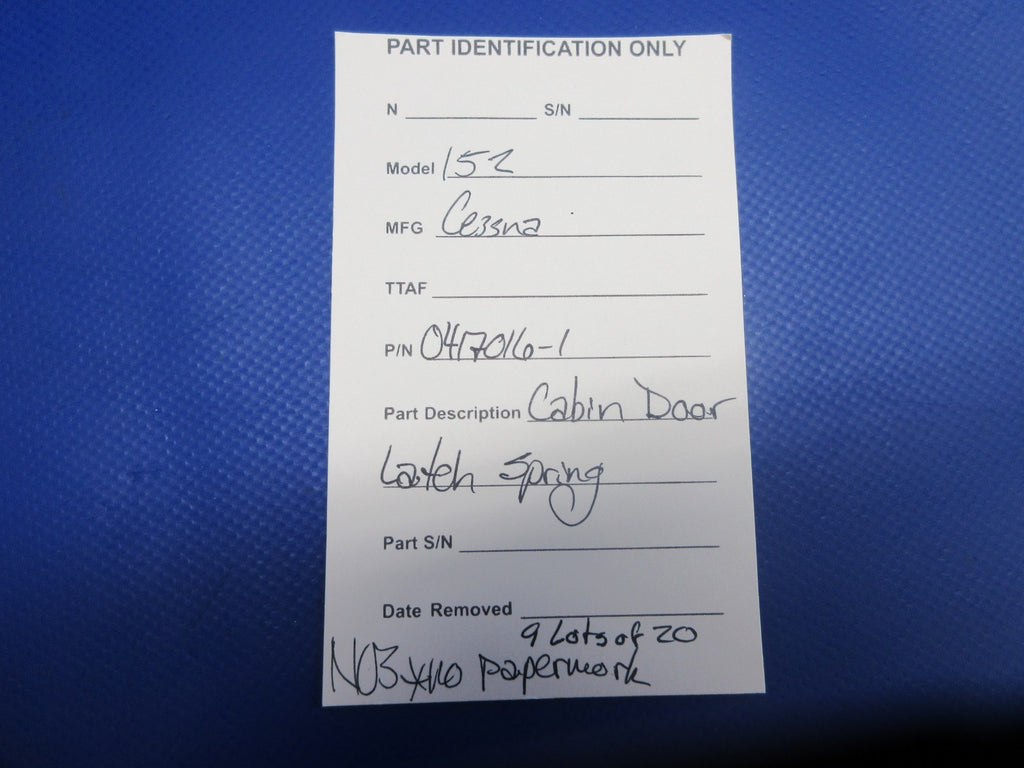 PART IDENTIFICATION ONLY
N S/N
Model 152
MFG Cessna
TTAF
P/N 0417016-1
Part Description Cabin Door
Latch Spring
Part S/N
Date Removed
9 Lots of 20
no paperwork